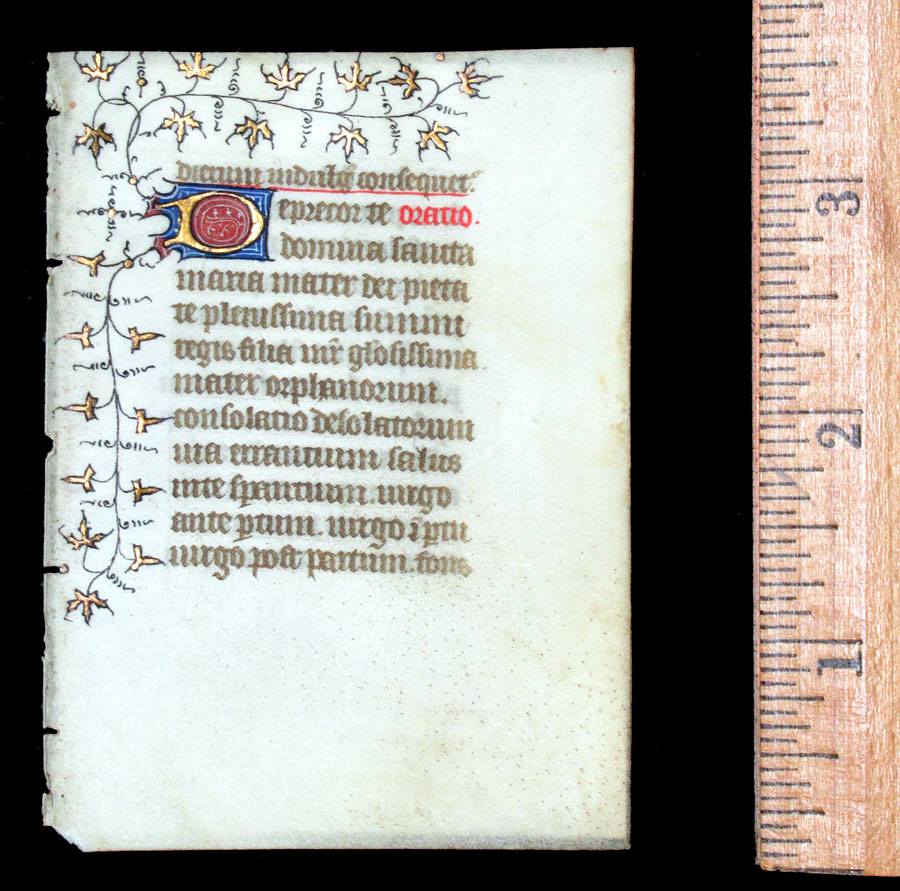 dictum indulg̃ consequet᷑.
Deprecor te oratio.
domina sancta
maria mater dei pieta
te plenissima summi
regis filia mr̃ glosissima
mater orphanorum.
consolatio desolatorum
uia errantium salus
inte sperantium. uirgo
ante ꝑtum. uirgo ĩ ꝑtu
uirgo post partum. fons
3
2
1